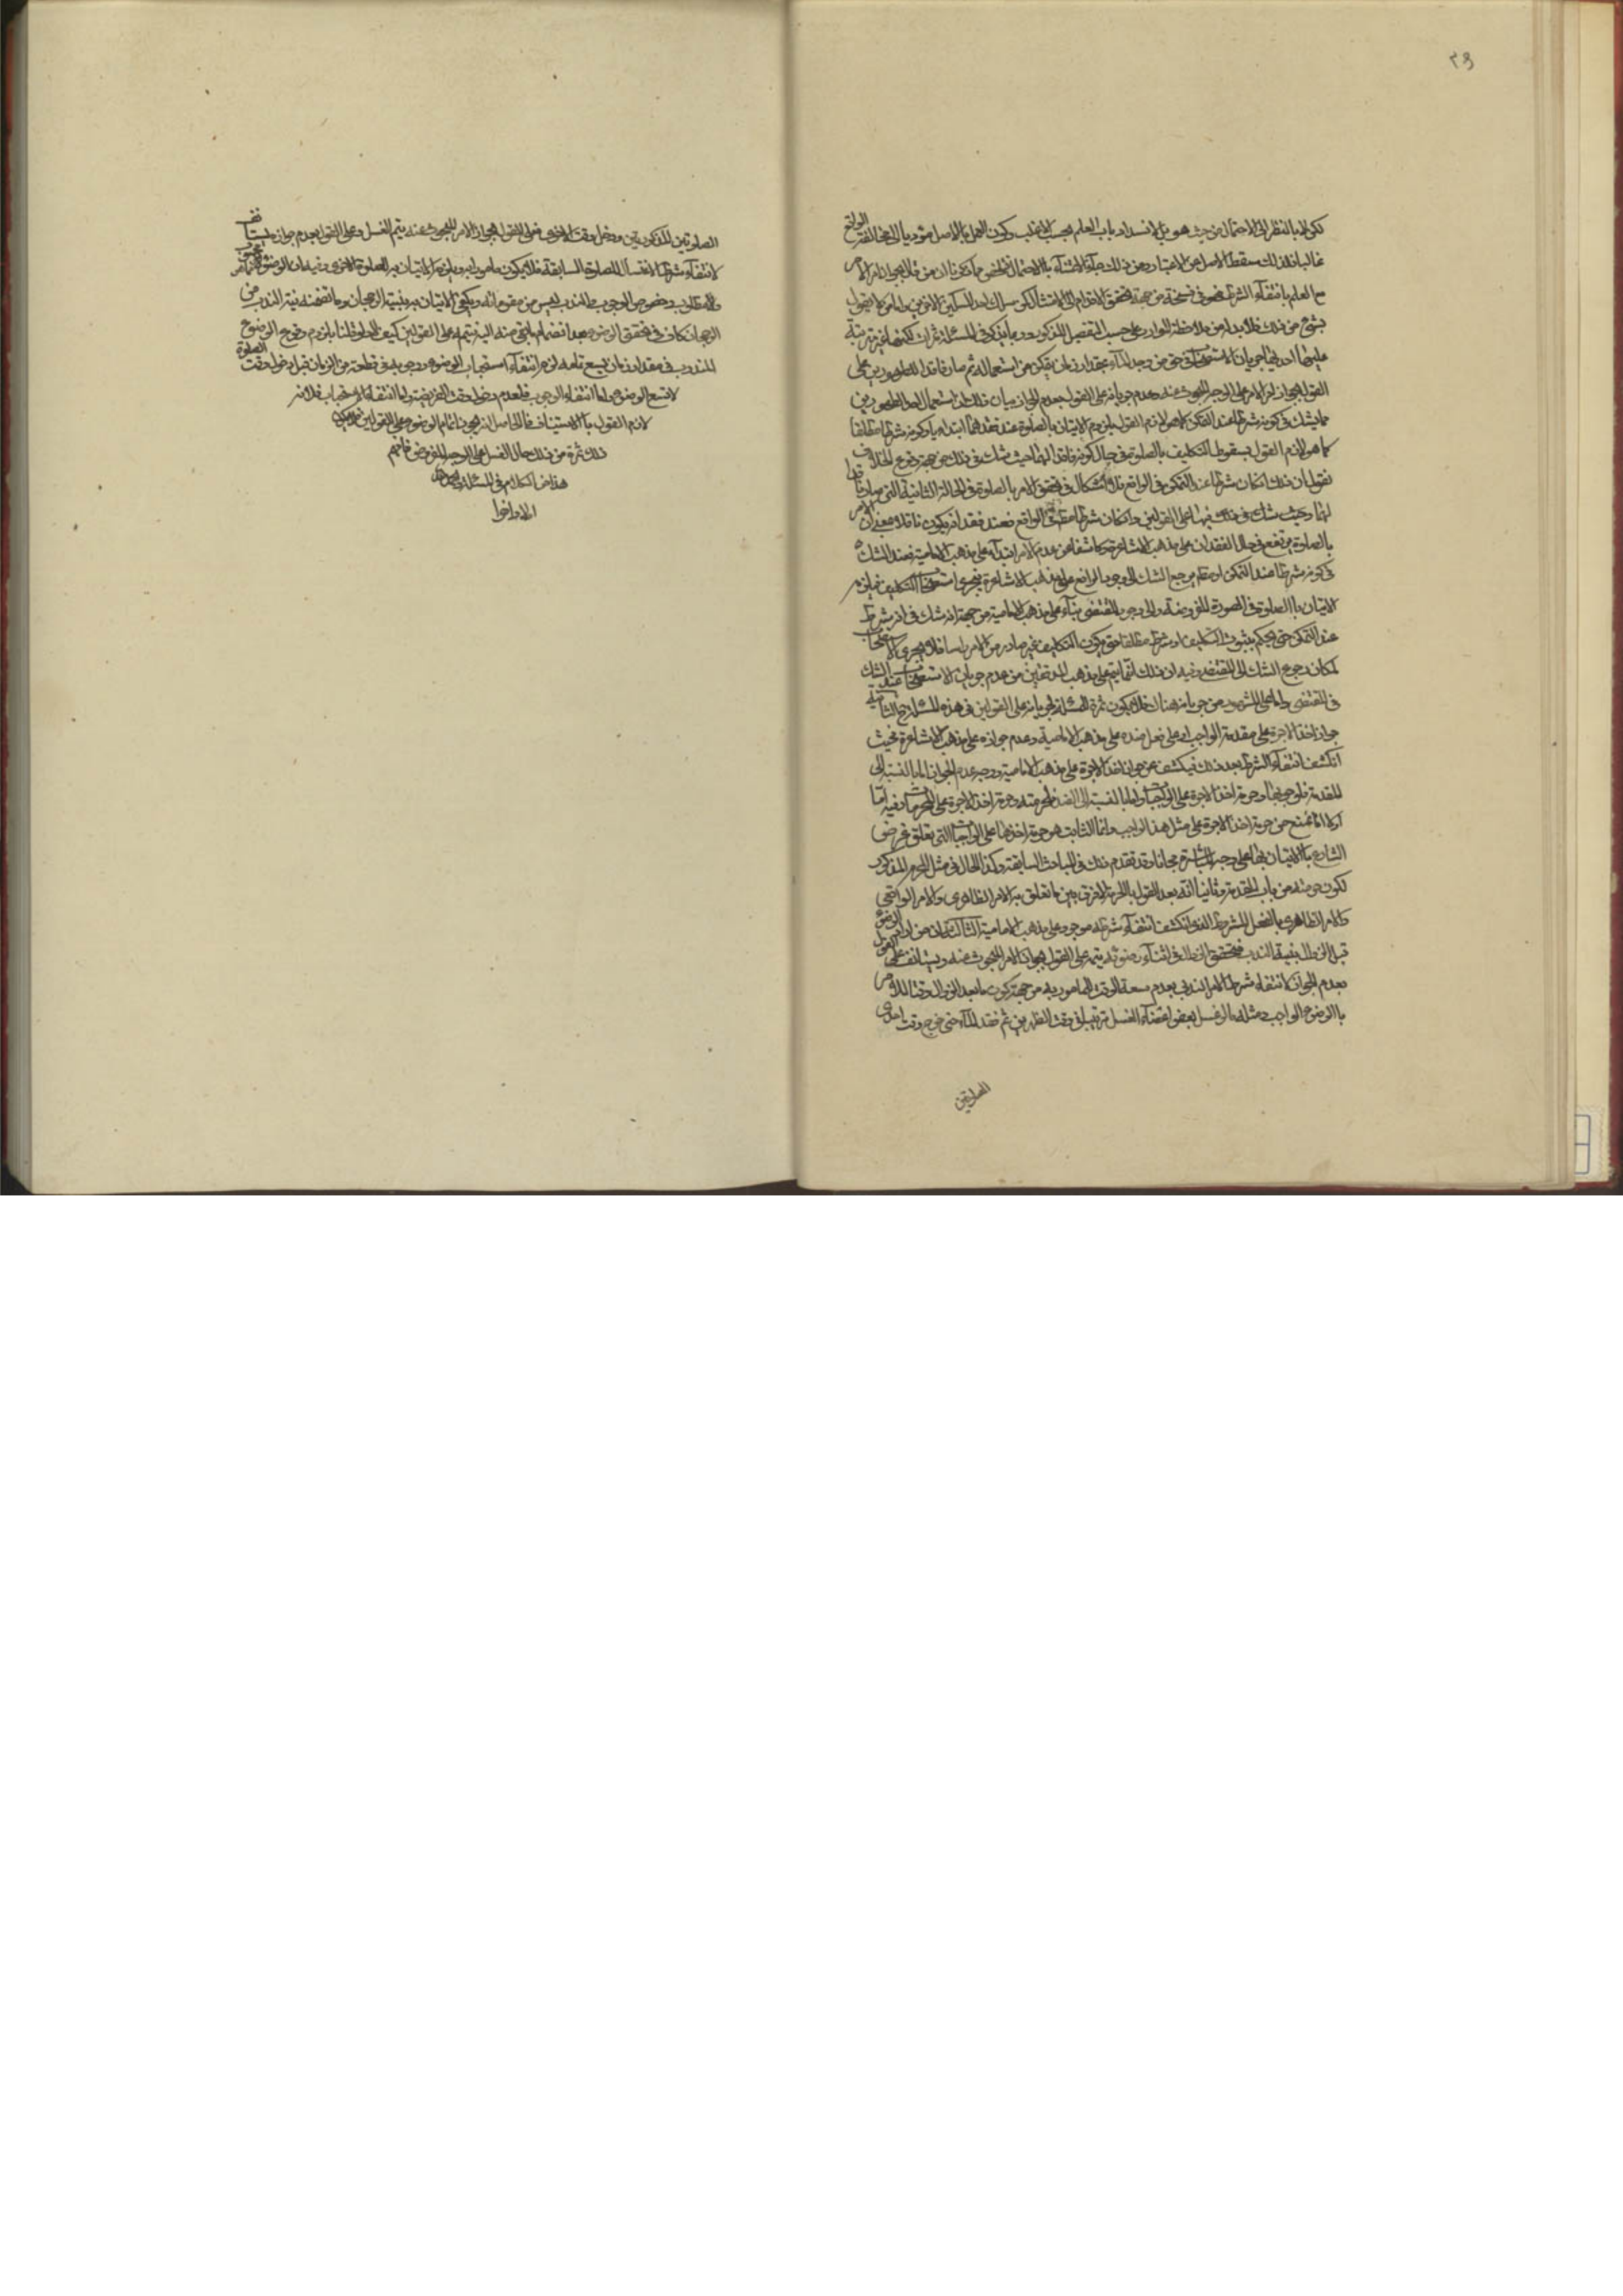 ٣٩
لكن لا بالنظر الى الاحتمال من حيث هو بل لانسداد باب العلم بحسب الاغلب وكون العمل بالاصل مؤديا الى الواقع
غالبا فلذلك سقط الاصل عن الاعتبار ومن ذلك جاء الاعتناء بالاحتمال
مع العلم بانتفاء الشرط فهو في فسحة من جهة تحقق الاقدام الى الامتثال
بشئ من ذلك فلا بد له من ملاحظة الموارد على حسب التفصيل المذكور
عليها احديها جريان الاستصحاب في حق من وجد الماء بمقدار زمان يتمكن من استعماله ثم صار فاقدا للطهورين على
القول بجواز الامر على الوجه المبحوث عنه وعدم جريانه على القول بعدم الجواز بيان ذلك ان استعمال احد الطهورين
مما يشك في كونه شرطا عند التمكن كما هو لازم القول بلزوم الاتيان بالصلوة عند فقدهما ابتداء او كونه شرطا مطلقا
كما هو لازم القول بسقوط التكليف بالصلوة في حال كونه فاقدا لهما حيث شك في ذلك من جهة وقوع الخلاف
نقول ان ذلك ان كان شرطا عند التمكن في الواقع فلا اشكال في تحقق الامر بالصلوة في الحالة الثانية التي صار فاقدا
لهما وحيث شك في ذلك فيها على القولين وان كان شرطا مطلقا في الواقع فعند فقده يكون
بالصلوة مرتفع في حال الفقدان على مذهب الاشاعرة وكاشفا عن عدم الامر ابتداء على مذهب الامامية فعند الشك
في كونه شرطا عند التمكن او مطلقا مرجع الشك الى وجود الرافع على مذهب الاشاعرة فيجري استصحاب التكليف فيلزم
الاتيان بالصلوة في الصورة المفروضة والى وجود المقتضى بناء على مذهب الامامية من جهة انه شك في انه شرط
عند التمكن حتى يحكم بثبوت التكليف او شرط مطلقا حتى يكون التكليف غير صادر من الامر راسا فلا يجرى الاستصحاب
لمكان رجوع الشك الى المقتضى وفيه ان ذلك انما يتم على مذهب المدققين من عدم جريان الاستصحاب عند الشك
في المقتضى واما على المشهور من جريانه هناك فلا يكون ثمرة للمسئلة لجريانه على القولين في هذه المسئلة الثانية
جواز اخذ الاجرة على مقدمة الواجب او على فعل ضده على مذهب الامامية وعدم جوازه على مذهب الاشاعرة بحيث
انكشف انتفاء الشرط بعد ذلك فيكشف عن جواز اخذ الاجرة على مذهب الامامية ووجه عدم الجواز اما بالنسبة الى
المقدمة فلوجوبها وحرمة اخذ الاجرة على الواجبات واما بالنسبة الى الضد فلحرمته وحرمة اخذ الاجرة على المحرمات وفيه اما
اولا انا نمنع من حرمة اخذ الاجرة على مثل هذا الواجب وانما الثابت هو حرمة اخذها على الواجبات التي تعلق غرض
الشارع بالاتيان بها على وجه المباشرة مجانا وقد تقدم ذلك في المباحث السابقة وكذا الحال في مثل المحرم المذكور
لكون حرمته من باب المقدمة وثانيا انه بعد القول بالحرمة لا فرق بين ما تعلق به الامر الظاهرى والامر الواقعى
والامر الظاهرى بالفعل المشروط الذى انكشف انتفاء شرطه موجود على مذهب الامامية الثالث ان من اراد الوضوء
قبل الزوال بنية الندب فتحقق الزوال في اثناء وضوئه يتمه على القول بجواز الامر المبحوث عنه ويستانف على القول
بعدم الجواز لانتفاء شرط الامر الندبى بعدم سعة الوقت للمامور به من جهة كون ما بعد الزوال وقتا للامر
بالوضوء الواجب ومثله ما لو غسل بعض اعضاء الغسل ترتيبا في وقت الظهرين ثم فقد الماء حتى خرج وقت احدى
الصلوتين
الصلوتين المذكورتين ودخل وقت الاخرى فعلى القول بجواز الامر المبحوث عنه يتم الغسل وعلى القول بعدم جوازه يستانف
لانتفاء شرط الاغتسال للصلوة السابقة فلا يكون مامورا به ويلزمه الاتيان به للصلوة الاخرى وفيه ان الوضوء
والمطلوب وخصوص الوجوب والندب ليس من مقوماته ويكفى الاتيان به بنية الرجحان وما تضمنه نية الندب من
الرجحان كاف في تحقق الوضوء بعد انضمام ما بقى منه اليه فيتمه على القولين كيف لا ولو قلنا بلزوم وقوع الوضوء
المندوب في مقدار زمان يسع تمامه لزم انتفاء استحباب الوضوء ووجوبه في قطعة من الزمان قبل دخول وقت الصلوة
لا تسع الوضوء اما انتفاء الوجوب فلعدم دخول وقت الفريضة واما انتفاء الاستحباب فلانه
لازم القول بالاستيناف فالحاصل انه يجوز اتمام الوضوء على القولين فلا يكون
ذلك ثمرة من ذلك حال الغسل على الوجه المفروض فافهم
هذا تمام الكلام في المسئلة والحمد لله
اولا واخرا